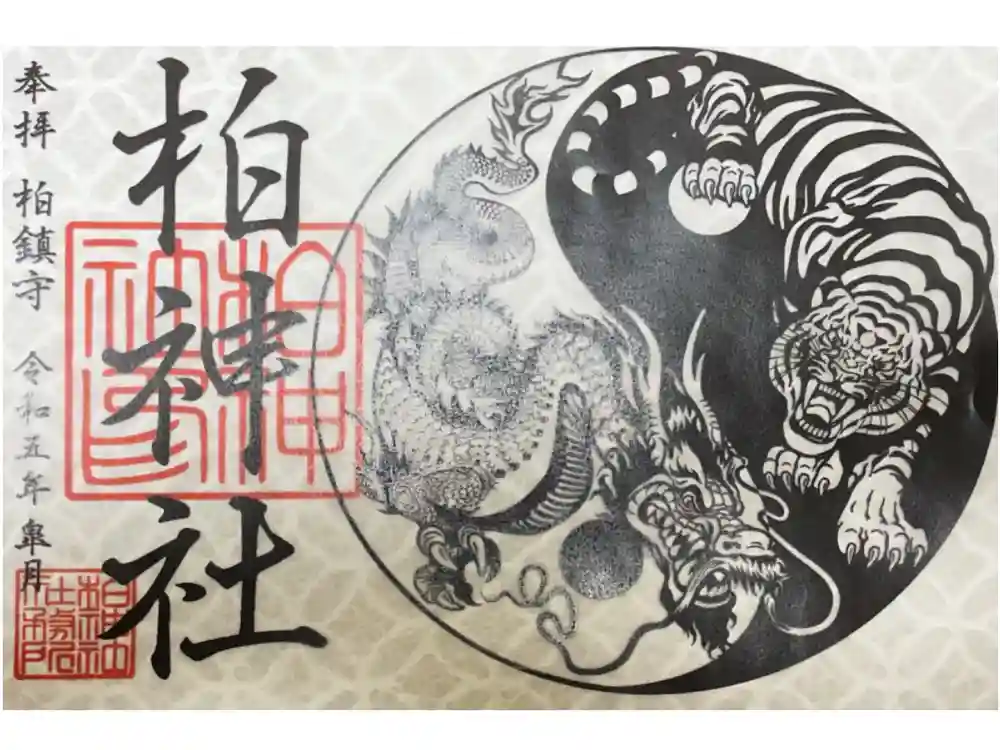 柏神社
奉拝 柏鎮守 令和五年 皐月
柏神社印
柏神社社務所印